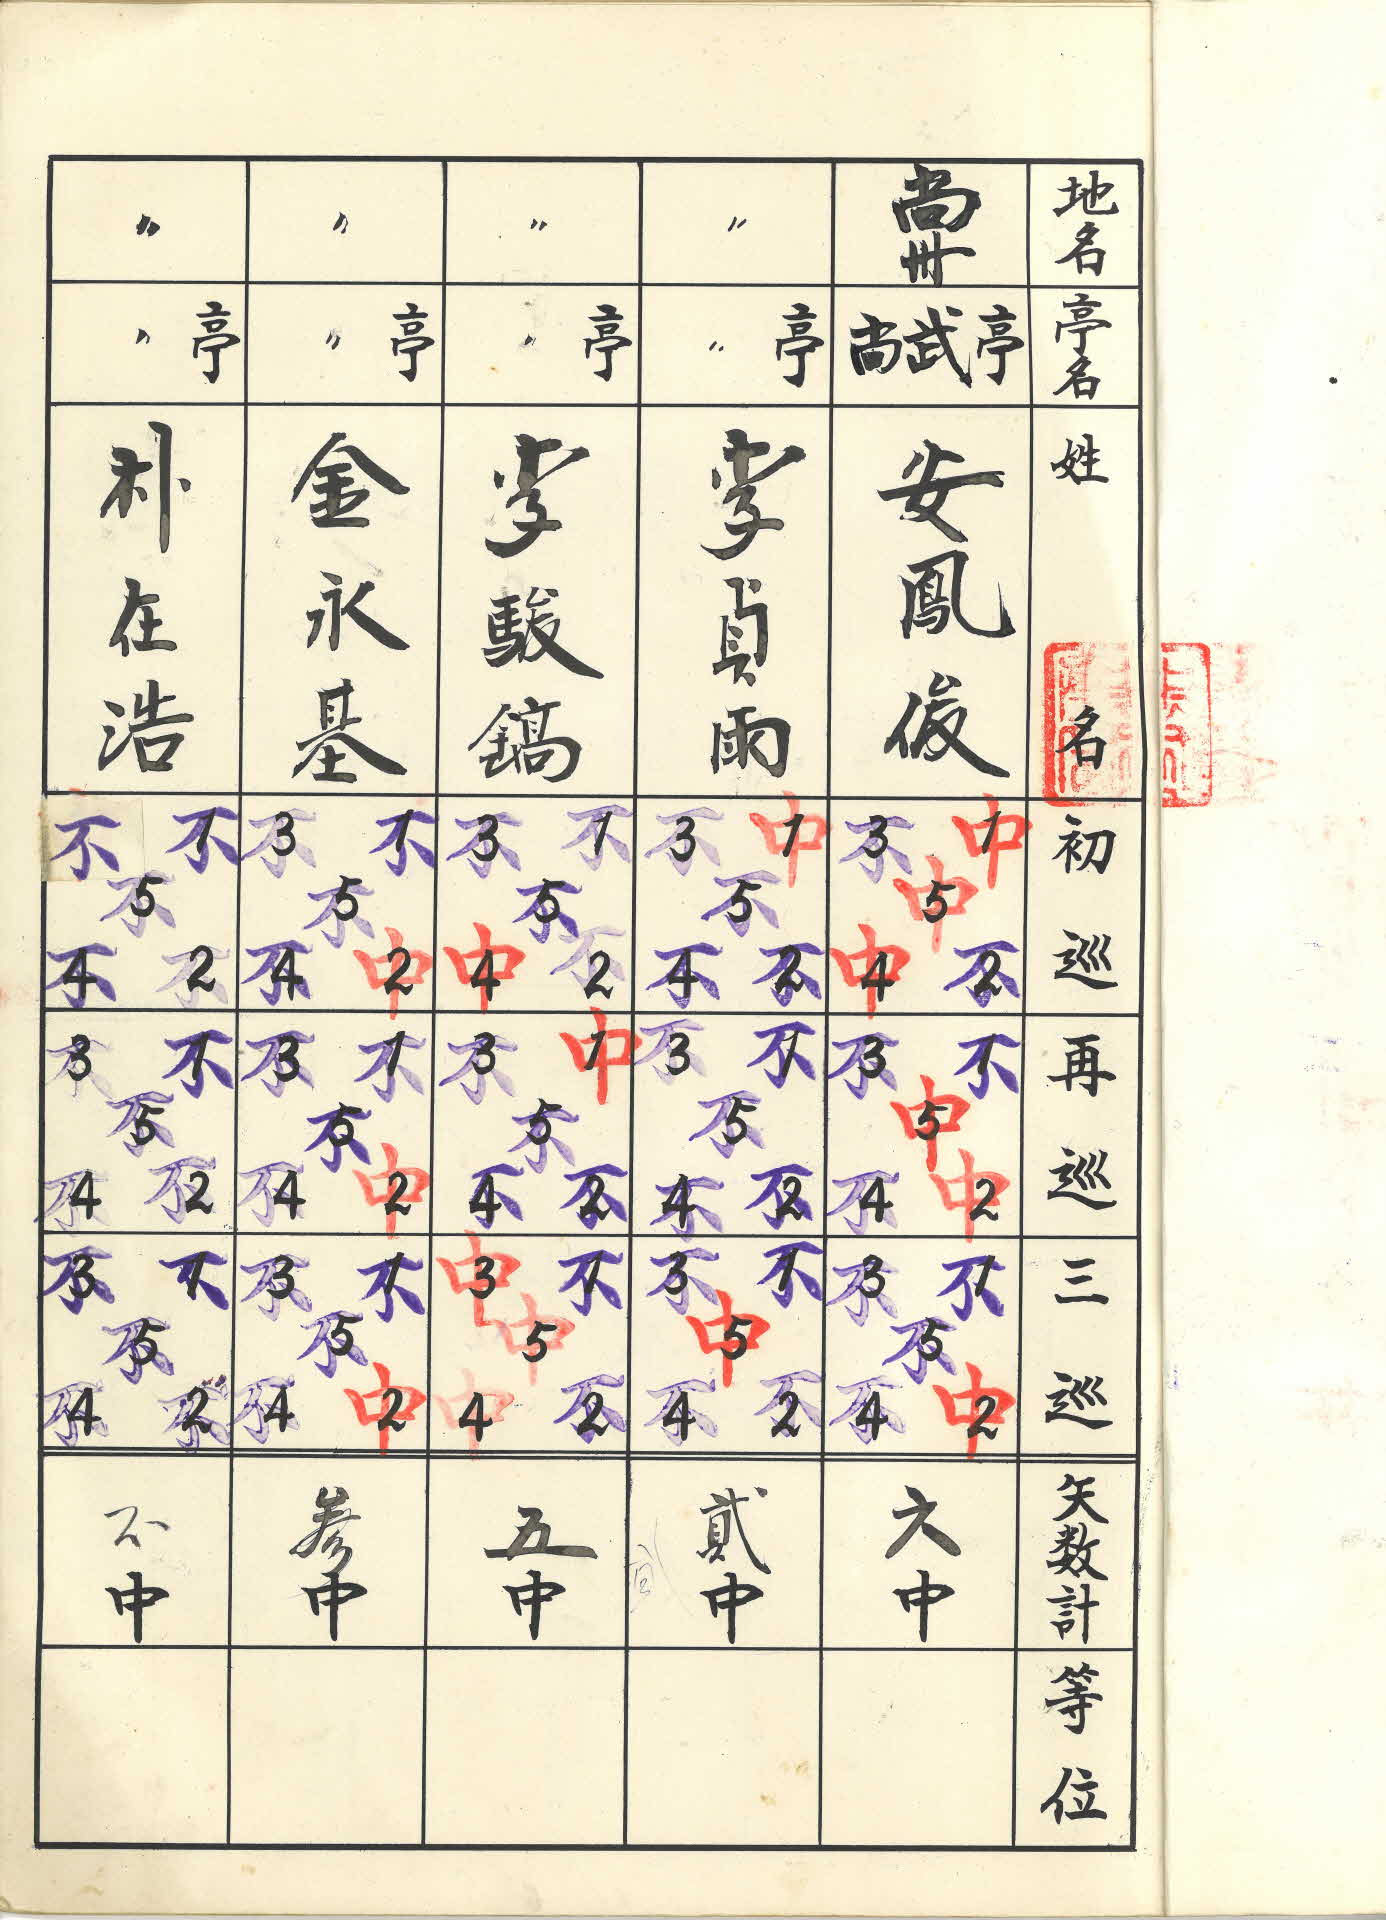 地名
亭名
姓名
初巡
再巡
三巡
矢数計
等位
尚州
尚武亭
安鳳俊
中1 不2 不3 中4 中5
不1 中2 不3 不4 中5
不1 中2 不3 不4 不5
六中
〃
〃亭
李貞雨
中1 不2 不3 不4 不5
不1 不2 不3 不4 不5
不1 不2 不3 不4 中5
貳中
〃
〃亭
李駿鎬
不1 不2 不3 中4 不5
中1 不2 不3 不4 不5
不1 不2 中3 中4 中5
五中
〃
〃亭
金永基
不1 中2 不3 不4 不5
不1 中2 不3 不4 不5
不1 中2 不3 不4 不5
参中
〃
〃亭
朴在浩
不1 不2 不 不4 不5
不1 不2 不3 不4 不5
不1 不2 不3 不4 不5
不中